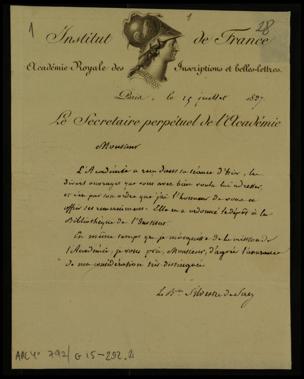 1
1
28
Institut de France
Académie Royale des Inscriptions et belles-lettres.
Paris, le 15 juillet 1837
Le Secrétaire perpétuel de l'Académie
Monsieur
L'Académie a reçu dans sa séance d'hier, les
divers ouvrages que vous avez bien voulu lui adresser,
et c'est par son ordre que j'ai l'honneur de vous en
offrir ses remerciemens. Elle en a ordonné le dépôt à la
Bibliothèque de l'Institut.
En même temps que je m'acquitte de la mission de
l'Académie, je vous prie, Monsieur, d'agréer l'assurance
de ma considération très distinguée
Le Bon Silvestre de Sacy
792/ G 15-292.2